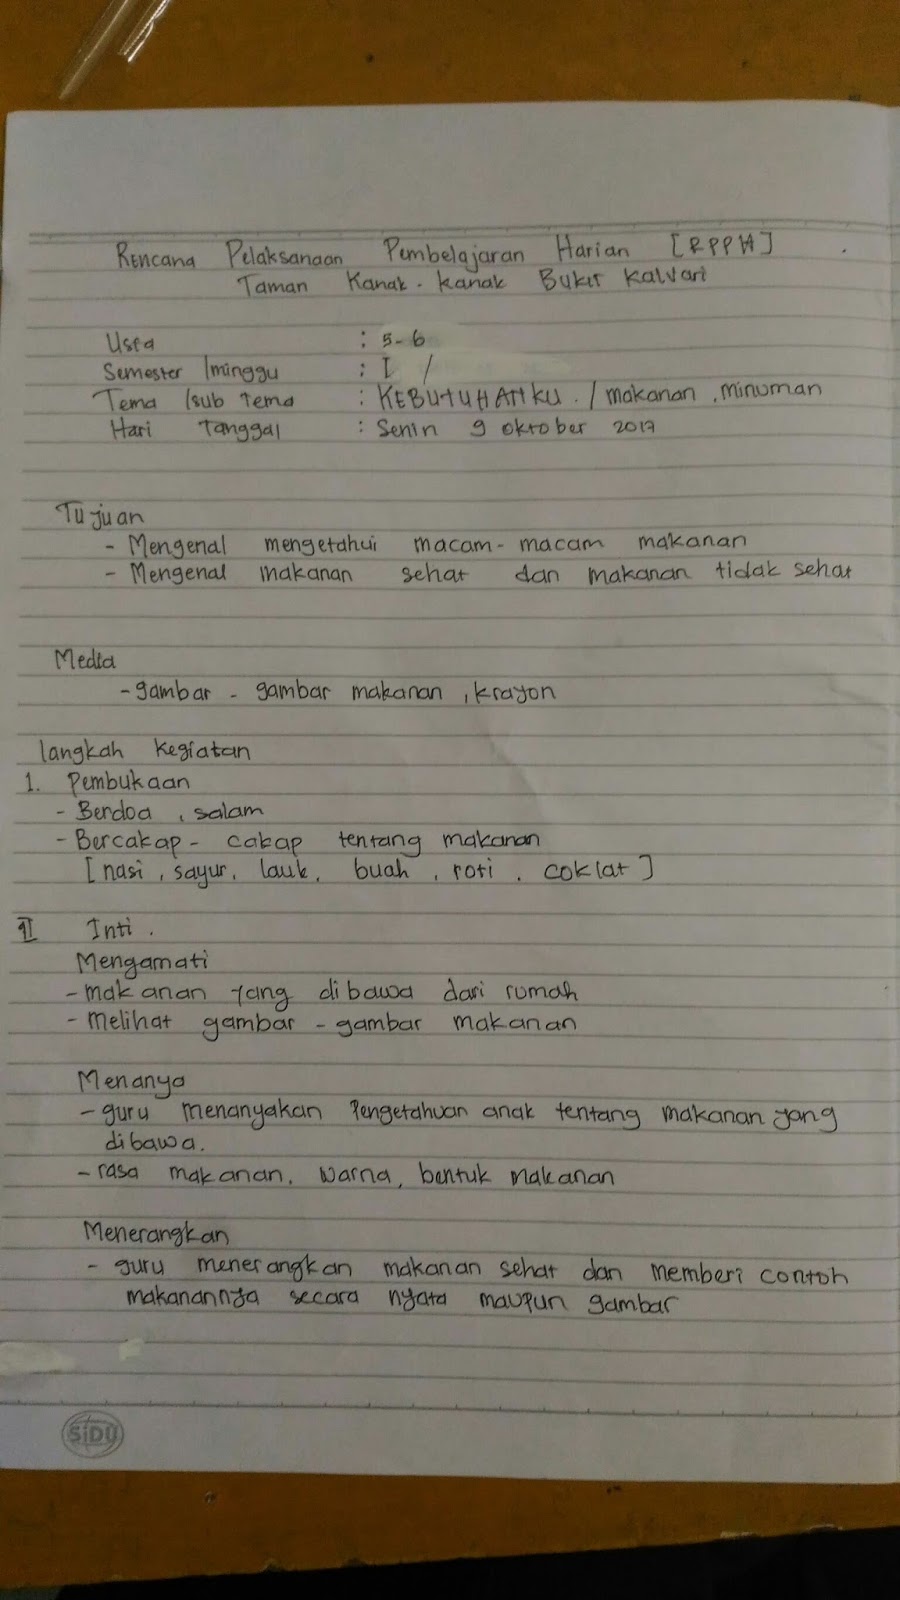 Rencana Pelaksanaan Pembelajaran Harian [RPPH]
Taman Kanak-kanak Bukit Kalvari
Usia : 5-6
Semester /minggu : I /
Tema /sub tema : KEBUTUHANKU. / makanan, minuman
Hari Tanggal : Senin 9 oktober 2017
Tujuan
- Mengenal mengetahui macam-macam makanan
- Mengenal makanan sehat dan makanan tidak sehat
Media
- gambar-gambar makanan, krayon
langkah kegiatan
1. Pembukaan
- Berdoa, salam
- Bercakap-cakap tentang makanan
[nasi, sayur, lauk, buah, roti. coklat]
II Inti.
Mengamati
- makanan yang dibawa dari rumah
- melihat gambar-gambar makanan
Menanya
- guru menanyakan Pengetahuan anak tentang makanan yang
dibawa.
- rasa makanan, warna, bentuk makanan
Menerangkan
- guru menerangkan makanan sehat dan memberi contoh
makanannya secara nyata maupun gambar
SiDU